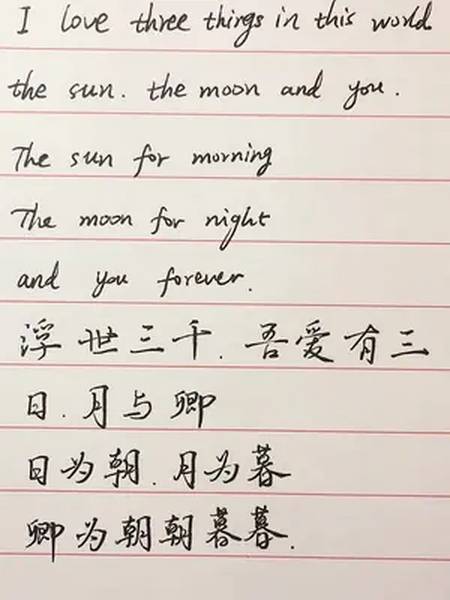 I love three things in this world
the sun. the moon and you.
The sun for morning
The moon for night
and you forever.
浮世三千.吾爱有三
日.月与卿
日为朝.月为暮
卿为朝朝暮暮.